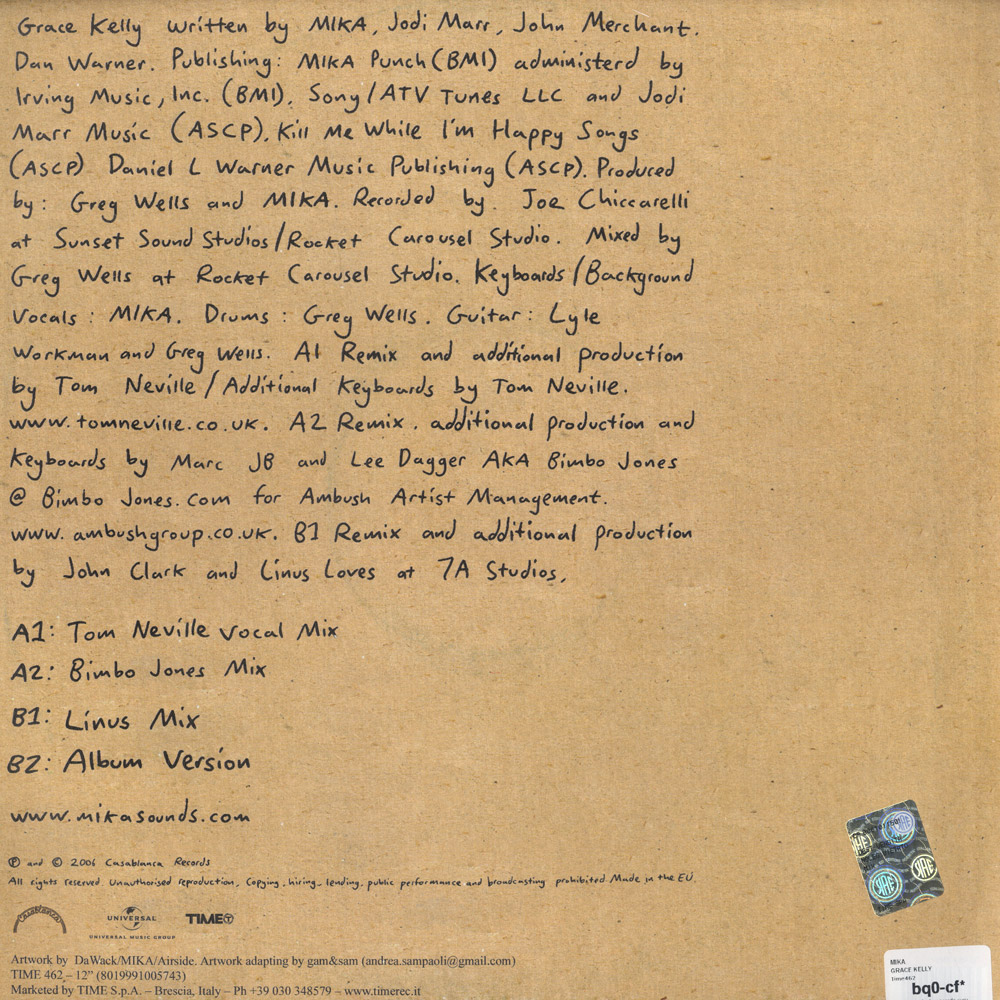 Grace Kelly written by MIKA, Jodi Marr, John Merchant.
Dan Warner. Publishing: MIKA Punch (BMI) administerd by
Irving Music, Inc. (BMI), Sony/ATV Tunes LLC and Jodi
Marr Music (ASCP), Kill Me While I'm Happy Songs
(ASCP) Daniel L Warner Music Publishing (ASCP). Produced
by: Greg Wells and MIKA. Recorded by. Joe Chiccarelli
at Sunset Sound Studios/Rocket Carousel Studio. Mixed by
Greg Wells at Rocket Carousel Studio. Keyboards/Background
Vocals: MIKA. Drums: Greg Wells. Guitar: Lyle
Workman and Greg Wells. A1 Remix and additional production
by Tom Neville/Additional Keyboards by Tom Neville.
www.tomneville.co.uk. A2 Remix. additional production and
Keyboards by Marc JB and Lee Dagger AKA Bimbo Jones
@ Bimbo Jones.com for Ambush Artist Management.
www.ambushgroup.co.uk. B1 Remix and additional production
by John Clark and Linus Loves at 7A Studios,
A1: Tom Neville Vocal Mix
A2: Bimbo Jones Mix
B1: Linus Mix
B2: Album Version
www.mikasounds.com
℗ and © 2006 Casablanca Records
All rights reserved. Unauthorised reproduction, Copying, hiring, lending, public performance and broadcasting prohibited. Made in the EU.
Casablanca
UNIVERSAL
UNIVERSAL MUSIC GROUP
TIME
Artwork by DaWack/MIKA/Airside. Artwork adapting by gam&sam (andrea.sampaoli@gmail.com)
TIME 462 – 12” (8019991005743)
Marketed by TIME S.p.A. – Brescia, Italy – Ph +39 030 348579 – www.timerec.it
MIKA
GRACE KELLY
Time462
bq0-cf*